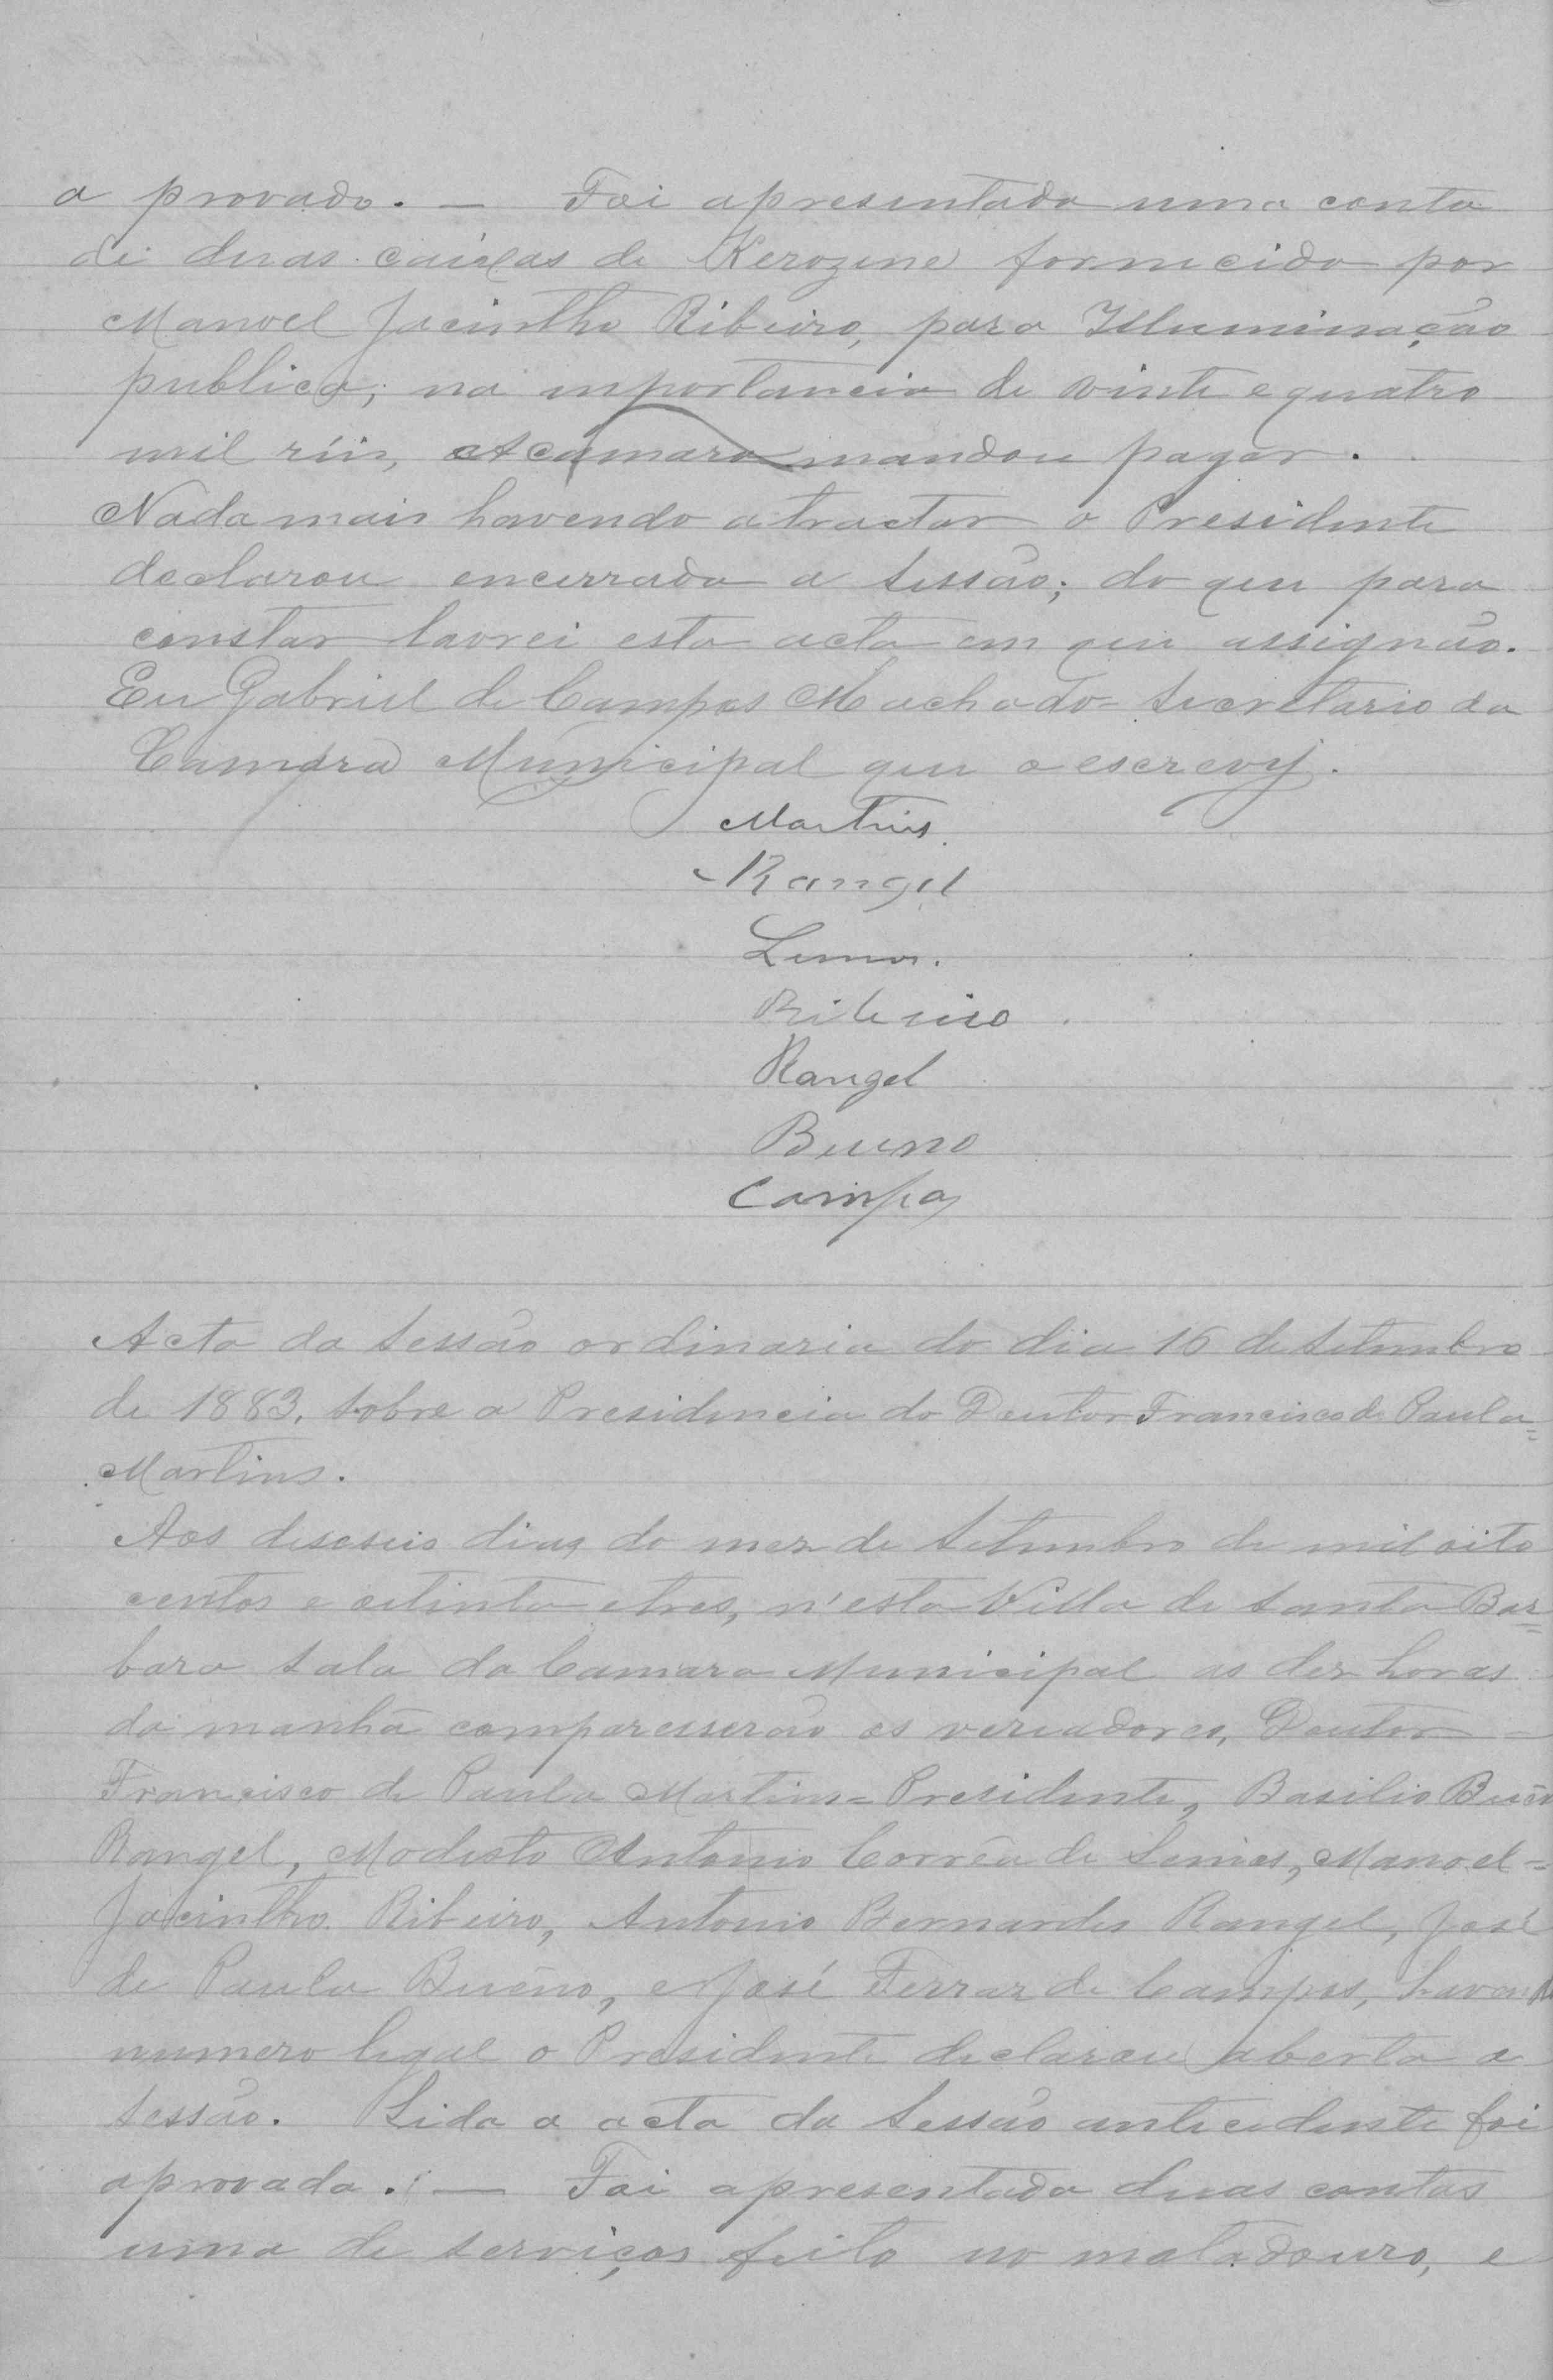 a provado. — Foi apresentada uma conta
de duas caixas de Kerozene fornecido por
Manoel Jacintho Ribeiro, para Illuminação
publica, na importancia de vinte e quatro
mil réis, A camara mandou pagar.
Nada mais havendo a tractar o Presidente
declarou encerrada a sessão; do que para
constar lavrei esta acta em que assignão.
Eu Gabriel de Campos Machado = Secretario da
Camara Municipal que o escrevy.
Martins.
Rangel
Lemos.
Ribeiro
Rangel
Bueno
Campos
Acta da Sessão ordinaria do dia 16 de Setembro
de 1883. Sobre a Presidencia do Doutor Francisco de Paula=
Martins.
Aos deseseis dias do mez de Setembro de mil oito
centos e oitinta e tres, n'esta Villa de Santa Bar=
bara sala da Camara Municipal as dez horas
da manhã comparesserão os vereadores, Doutor
Francisco de Paula Martins = Presidente, Basilio Bueno
Rangel, Modesto Antonio Corrêa de Lemos, Manoel =
Jacintho Ribeiro, Antonio Bernardes Rangel, José
de Paula Bueno, e José Ferraz de Campos, havendo
numero legal o Presidente declarou aberta a
sessão. Lida a acta da Sessão antecedente foi
aprovada. — Foi apresentada duas contas
uma de serviços feito no matadouro, e